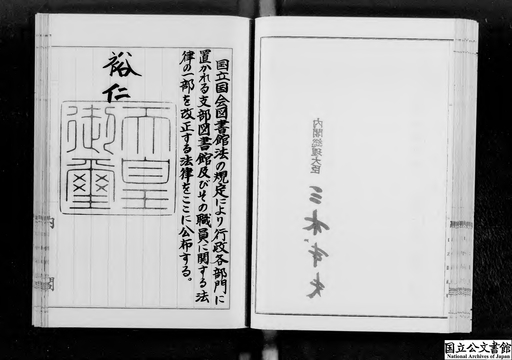 国立国会図書館法の規定により行政各部門に
置かれる支部図書館及びその職員に関する法
律の一部を改正する法律をここに公布する。
裕仁
天皇
御璽
内閣
内閣総理大臣
三木武夫
国立公文書館
National Archives of Japan